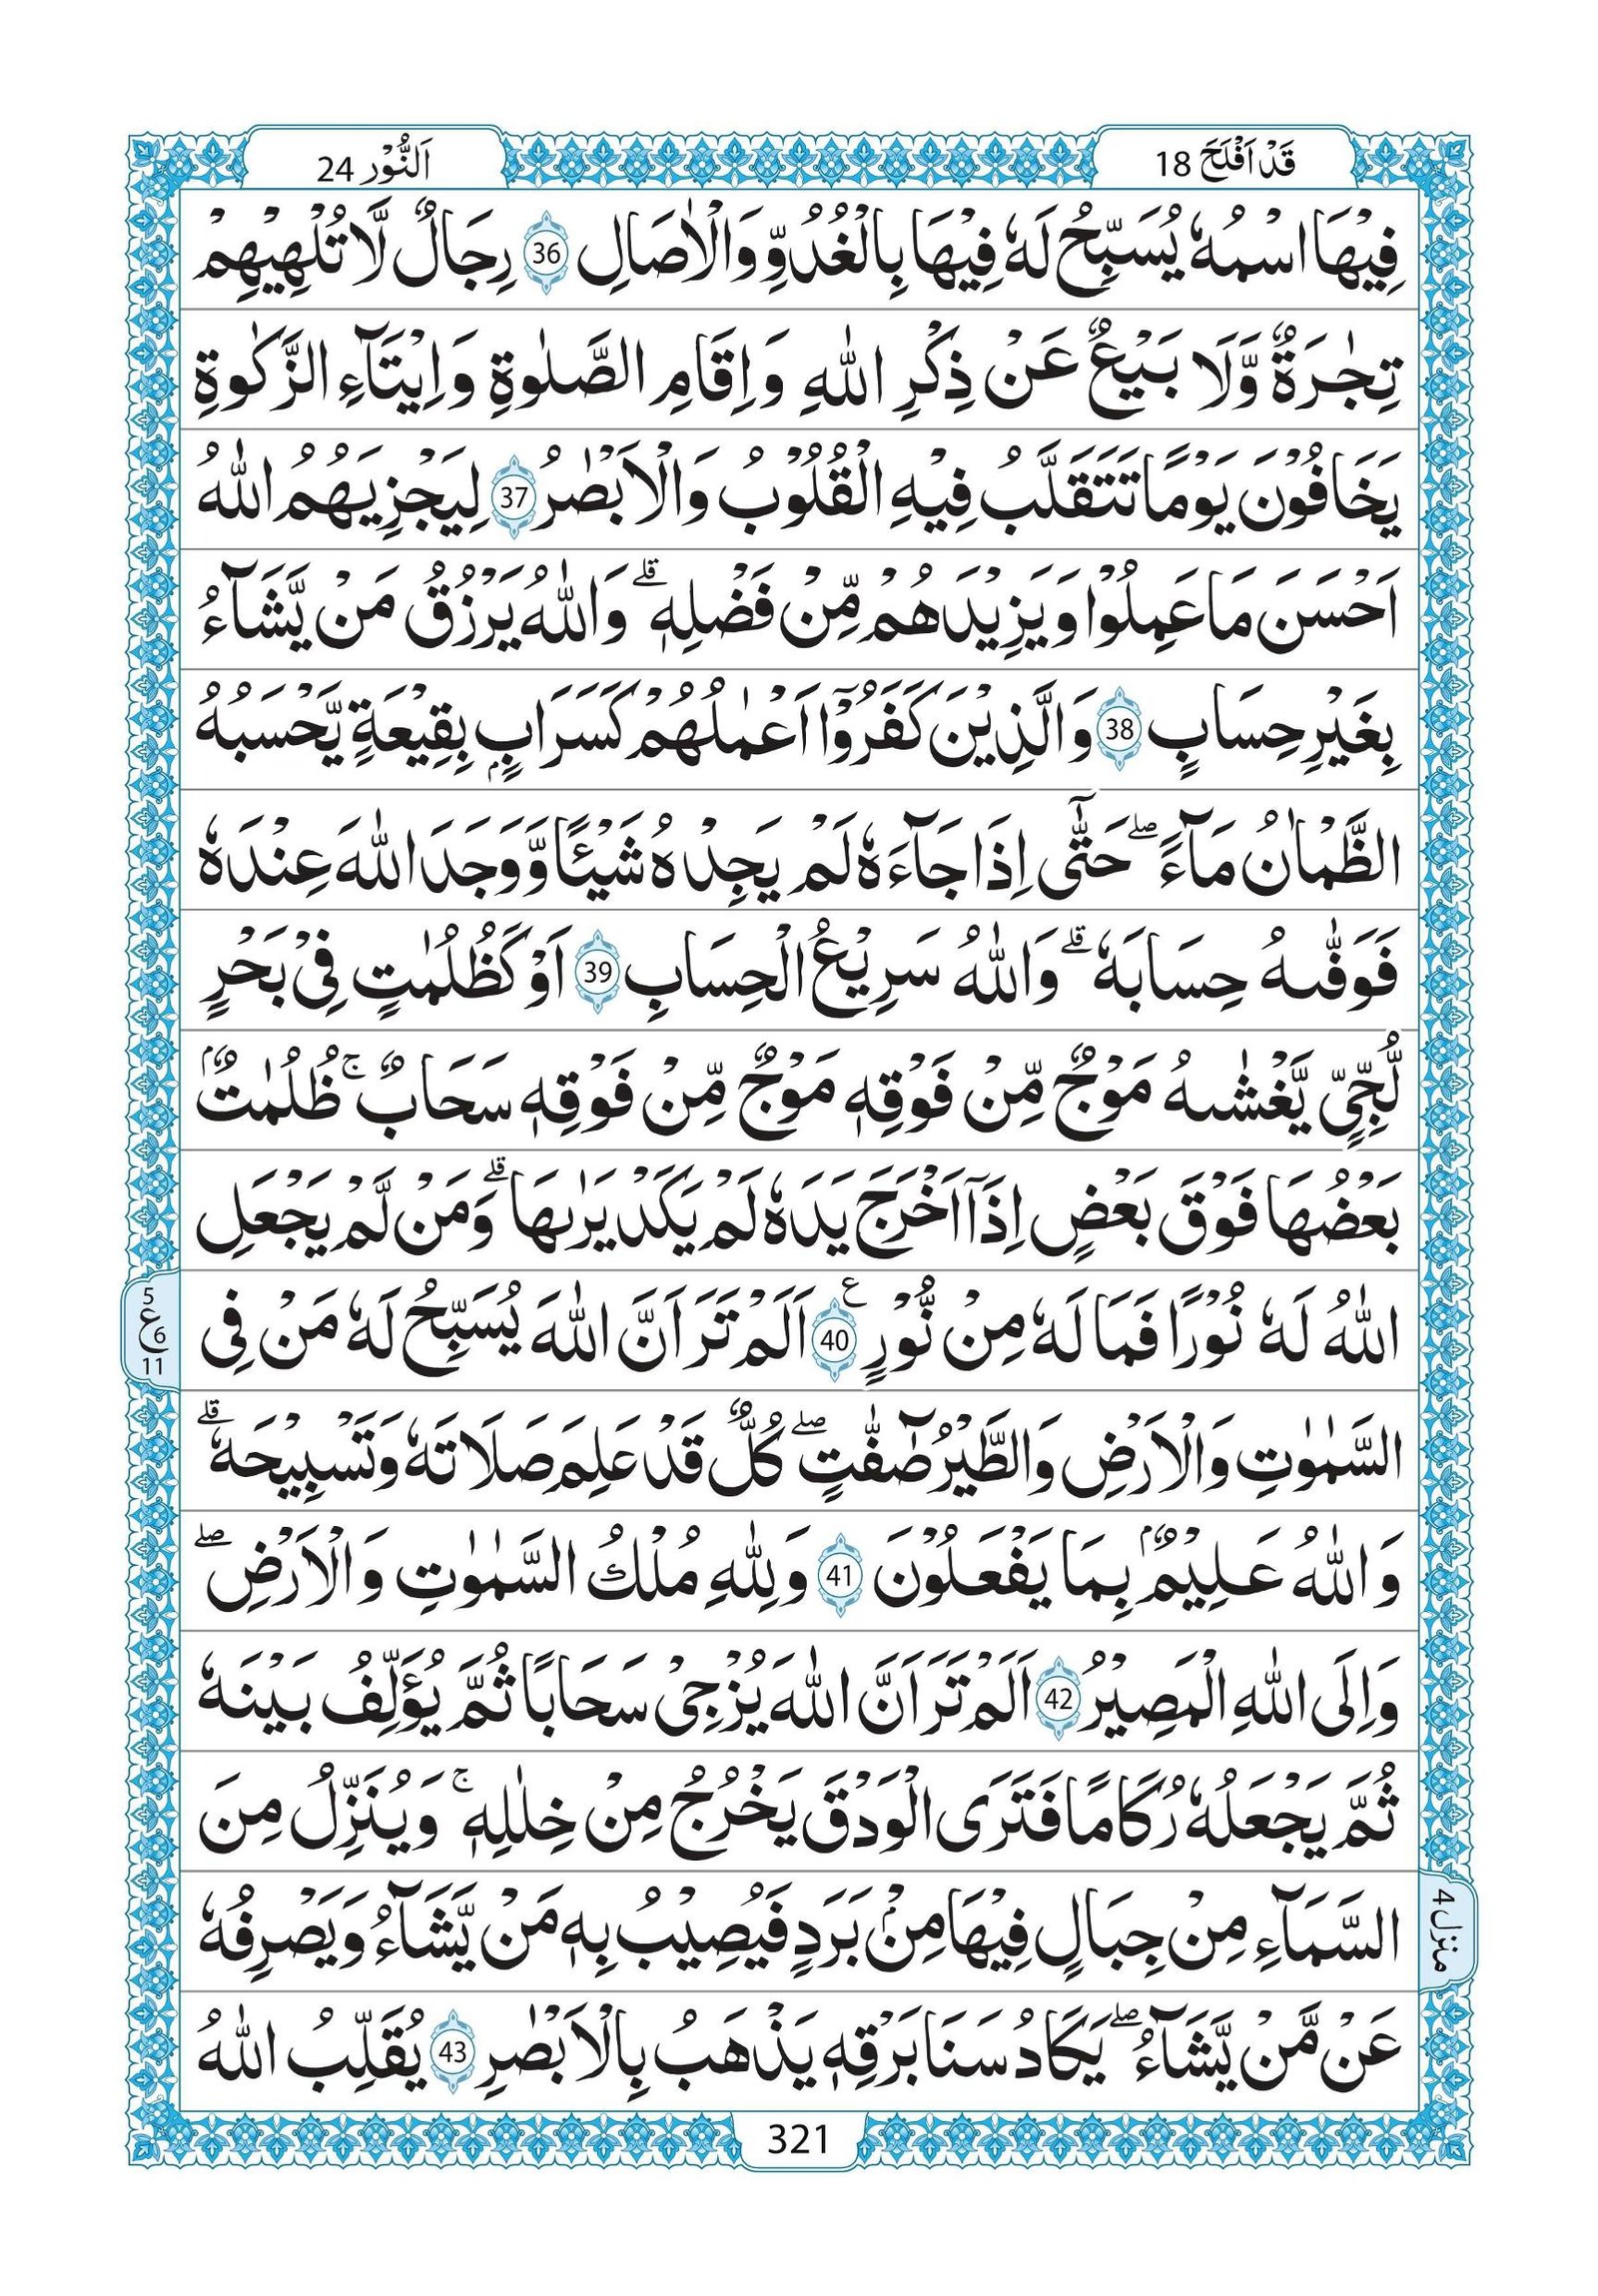 قَدْ اَفْلَحَ 18
اَلنُّوْر 24
فِيْهَا اسْمُهٗ يُسَبِّحُ لَهٗ فِيْهَا بِالْغُدُوِّ وَالْاٰصَالِ 36 رِجَالٌ لَّا تُلْهِيْهِمْ
تِجٰرَةٌ وَّلَا بَيْعٌ عَنْ ذِكْرِ اللّٰهِ وَاِقَامِ الصَّلٰوةِ وَاِيْتَآءِ الزَّكٰوةِ
يَخَافُوْنَ يَوْمًا تَتَقَلَّبُ فِيْهِ الْقُلُوْبُ وَالْاَبْصٰرُ 37 لِيَجْزِيَهُمُ اللّٰهُ
اَحْسَنَ مَا عَمِلُوْا وَيَزِيْدَهُمْ مِّنْ فَضْلِهٖ ۗ وَاللّٰهُ يَرْزُقُ مَنْ يَّشَآءُ
بِغَيْرِ حِسَابٍ 38 وَالَّذِيْنَ كَفَرُوْٓا اَعْمٰلُهُمْ كَسَرَابٍۢ بِقِيْعَةٍ يَّحْسَبُهُ
الظَّمْاٰنُ مَآءً ۖ حَتّٰٓى اِذَا جَآءَهٗ لَمْ يَجِدْهُ شَيْـًٔا وَّوَجَدَ اللّٰهَ عِنْدَهٗ
فَوَفّٰىهُ حِسَابَهٗ ۗ وَاللّٰهُ سَرِيْعُ الْحِسَابِ 39 اَوْ كَظُلُمٰتٍ فِيْ بَحْرٍ
لُّجِّيٍّ يَّغْشٰىهُ مَوْجٌ مِّنْ فَوْقِهٖ مَوْجٌ مِّنْ فَوْقِهٖ سَحَابٌ ۚ ظُلُمٰتٌۢ
بَعْضُهَا فَوْقَ بَعْضٍ اِذَآ اَخْرَجَ يَدَهٗ لَمْ يَكَدْ يَرٰىهَا ۗ وَمَنْ لَّمْ يَجْعَلِ
اللّٰهُ لَهٗ نُوْرًا فَمَا لَهٗ مِنْ نُّوْرٍ ع 40 اَلَمْ تَرَ اَنَّ اللّٰهَ يُسَبِّحُ لَهٗ مَنْ فِى
5 ع 6 11
السَّمٰوٰتِ وَالْاَرْضِ وَالطَّيْرُ صٰٓفّٰتٍ ۖ كُلٌّ قَدْ عَلِمَ صَلَاتَهٗ وَتَسْبِيْحَهٗ ۗ
وَاللّٰهُ عَلِيْمٌۢ بِمَا يَفْعَلُوْنَ 41 وَلِلّٰهِ مُلْكُ السَّمٰوٰتِ وَالْاَرْضِ ۖ
وَاِلَى اللّٰهِ الْمَصِيْرُ 42 اَلَمْ تَرَ اَنَّ اللّٰهَ يُزْجِيْ سَحَابًا ثُمَّ يُؤَلِّفُ بَيْنَهٗ
ثُمَّ يَجْعَلُهٗ رُكَامًا فَتَرَى الْوَدْقَ يَخْرُجُ مِنْ خِلٰلِهٖ ۚ وَيُنَزِّلُ مِنَ
السَّمَآءِ مِنْ جِبَالٍ فِيْهَا مِنْۢ بَرَدٍ فَيُصِيْبُ بِهٖ مَنْ يَّشَآءُ وَيَصْرِفُهٗ
منزل 4
عَنْ مَّنْ يَّشَآءُ ۖ يَكَادُ سَنَا بَرْقِهٖ يَذْهَبُ بِالْاَبْصٰرِ 43 يُقَلِّبُ اللّٰهُ
321